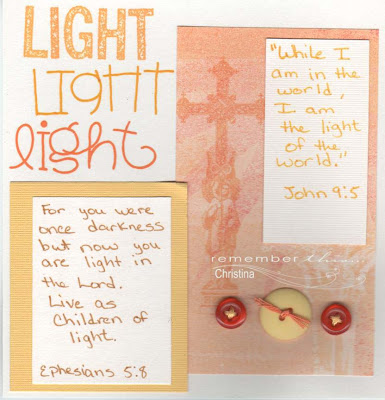 LIGHT
LIGHT
light
"While I
am in the
world,
I am
the light
of the
world."
John 9:5
For you were
once darkness
but now you
are light in
the Lord.
Live as
Children of
light.
Ephesians 5:8
remember
Christina